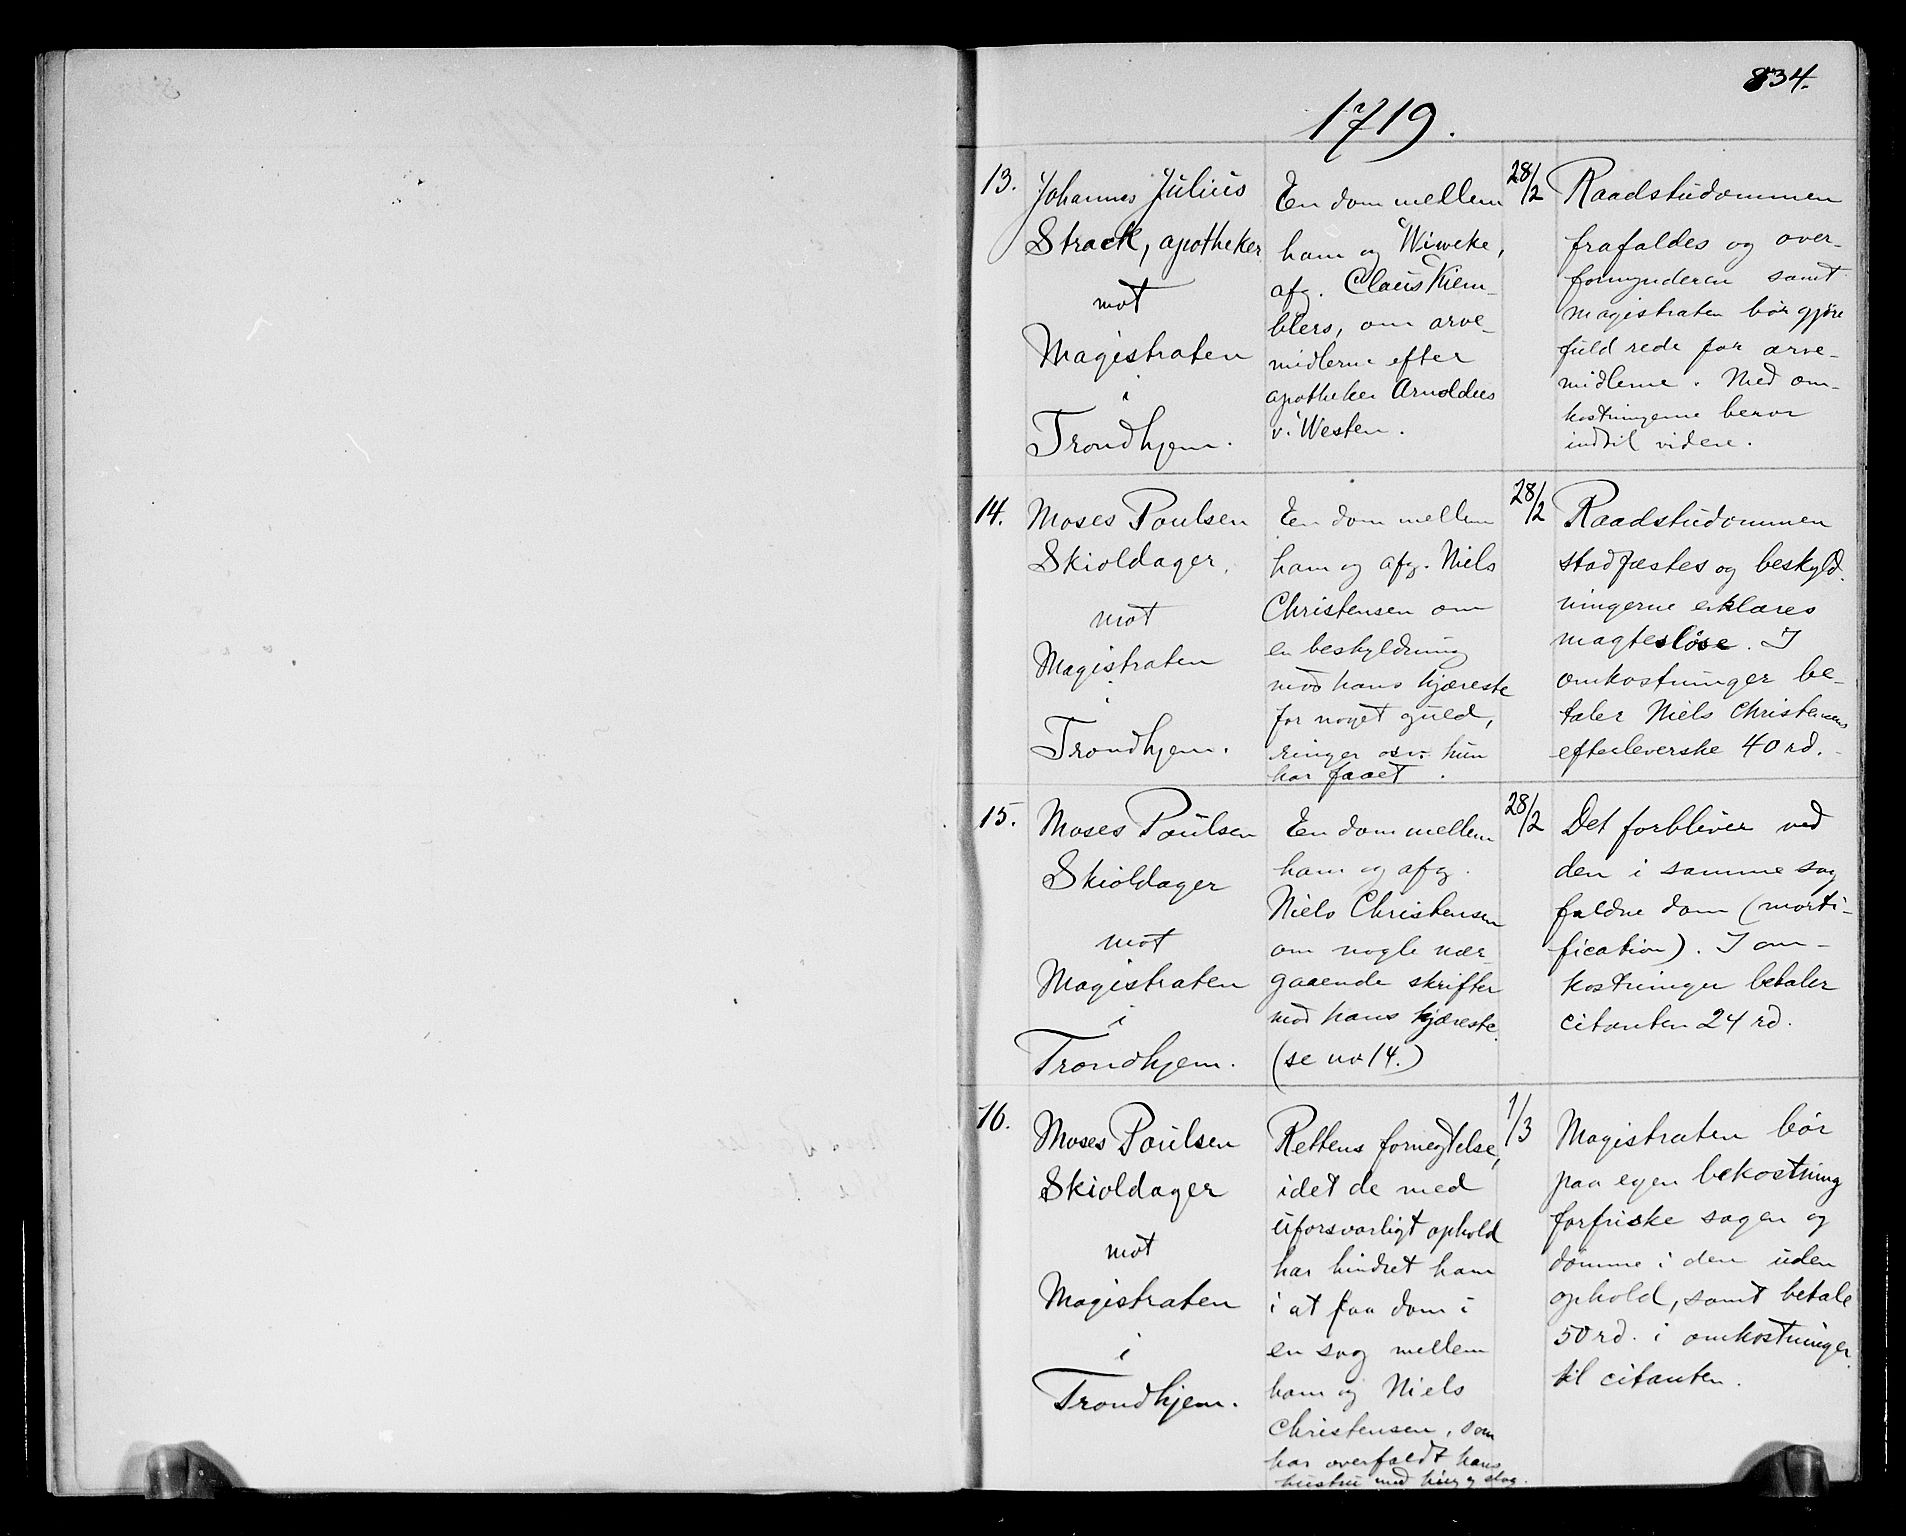 834.
1719.
13.
Johannes Julius
Strack, apotheker
mot
Magistraten
i
Trondhjem.
En dom mellem
ham og Wiweke,
afg. Claus Kiem-
blers, om arve-
midlerne efter
apotheker Arnoldus
v. Westen.
28/2
Raadstudommen
frafaldes og over-
formynderen samt
magistraten bør gjøre
fuld rede for arve-
midlerne. Med om-
kostningerne beror
indtil videre.
14.
Moses Poulsen
Skioldager,
mot
Magistraten
i
Trondhjem.
En dom mellem
ham og afg. Niels
Christensen om
en beskyldning
mod hans kjæreste
for noget guld,
ringer osv. hun
har faaet.
28/2
Raadstudommen
stadfæstes og beskyld-
ningerne erklæres
magtesløse. I
omkostninger be-
taler Niels Christensens
efterleverske 40 rd.
15.
Moses Poulsen
Skioldager
mot
Magistraten
i
Trondhjem.
En dom mellem
ham og afg.
Niels Christensen
om nogle nær-
gaaende skrifter
mod hans kjæreste
(se no 14.)
28/2
Det forbliver ved
den i samme sag
faldne dom (morti-
fication). I om-
kostninger betaler
citanten 24 rd.
16.
Moses Poulsen
Skioldager
mot
Magistraten
i
Trondhjem.
Rettens fornegtelse,
idet de med
uforsvarligt ophold
har hindret ham
i at faa dom i
en sag mellem
ham og Niels
Christensen, som
har overfaldt hans
hustru med hug og slag.
1/3
Magistraten bør
paa egen bekostning
forfriske sagen og
dømme i den uden
ophold, samt betale
50 rd. i omkostninger
til citanten.